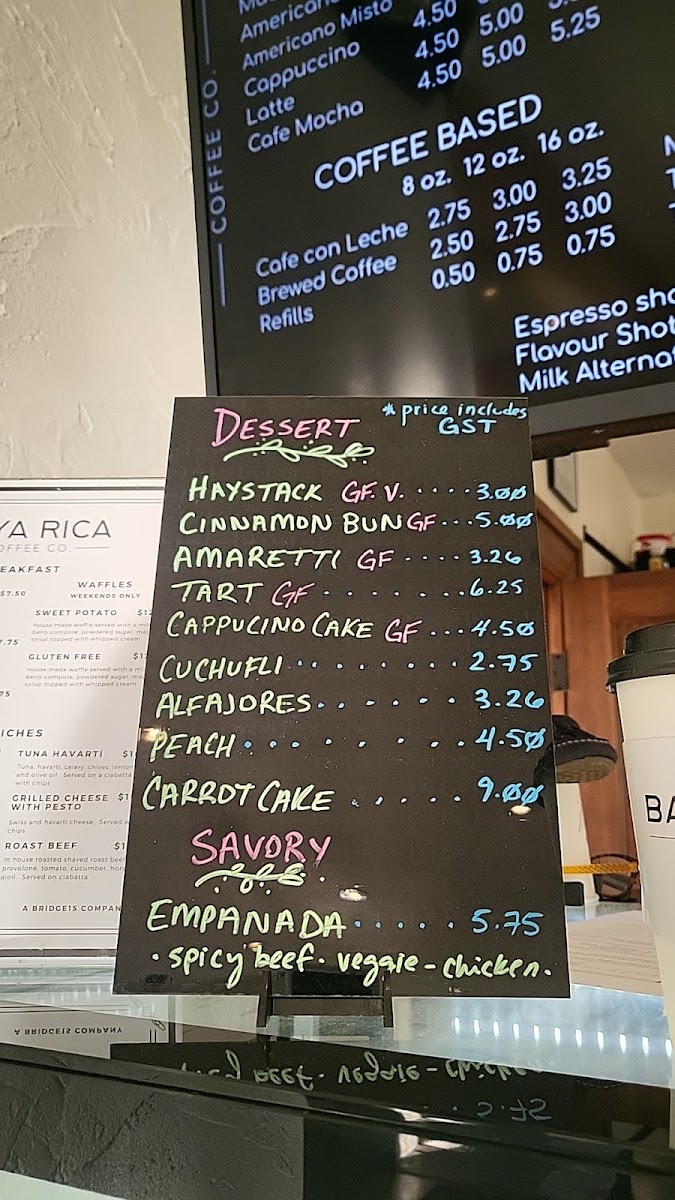 COFFEE CO.
Americano
Americano Misto 4.50
Cappuccino 4.50 5.00
Latte 4.50 5.00 5.25
Cafe Mocha
COFFEE BASED
8 oz. 12 oz. 16 oz.
Cafe con Leche 2.75 3.00 3.25
Brewed Coffee 2.50 2.75 3.00
Refills 0.50 0.75 0.75
Espresso sho
Flavour Shot
Milk Alternat
DESSERT * price includes
GST
HAYSTACK GF. V. ..... 3.00
CINNAMON BUN GF... 5.00
AMARETTI GF .... 3.26
TART GF ........ 6.25
CAPPUCINO CAKE GF ... 4.50
CUCHUFLI ........ 2.75
ALFAJORES ...... 3.26
PEACH ........ 4.50
CARROT CAKE ..... 9.00
SAVORY
EMPANADA ..... 5.75
· spicy beef · veggie - chicken.
YA RICA
OFFEE CO.
EAKFAST
$7.50
WAFFLES
WEEKENDS ONLY
SWEET POTATO $12
House made waffle served with a mi
berry compote, powdered sugar, ma
syrup topped with whipped cream
7.75
GLUTEN FREE $1
House made waffle served with a mi
berry compote, powdered sugar, ma
syrup topped with whipped cream
75
ICHES
TUNA HAVARTI $1
Tuna, havarti, celery, chives, lemon
and olive oil. Served on a ciabatta
with chips
GRILLED CHEESE $1
WITH PESTO
Swiss and havarti cheese. Served w
chips
ROAST BEEF $1
In house roasted shaved roast beef
provolone, tomato, cucumber, hors
aioli. Served on ciabatta
A BRIDGE15 COMPAN
BA
A BRIDGE15 COMPANY